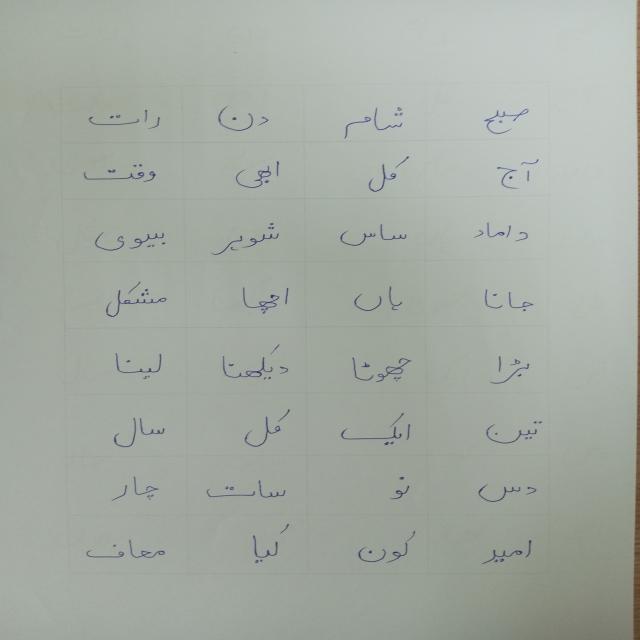 صبح شام دن رات
آج کل ابھی وقت
داماد ساس شوہر بیوی
جانا ہاں اچھا مشکل
بڑا چھوٹا دیکھنا لینا
تین ایک کل سال
دس نو سات چار
امیر کون کیا معاف